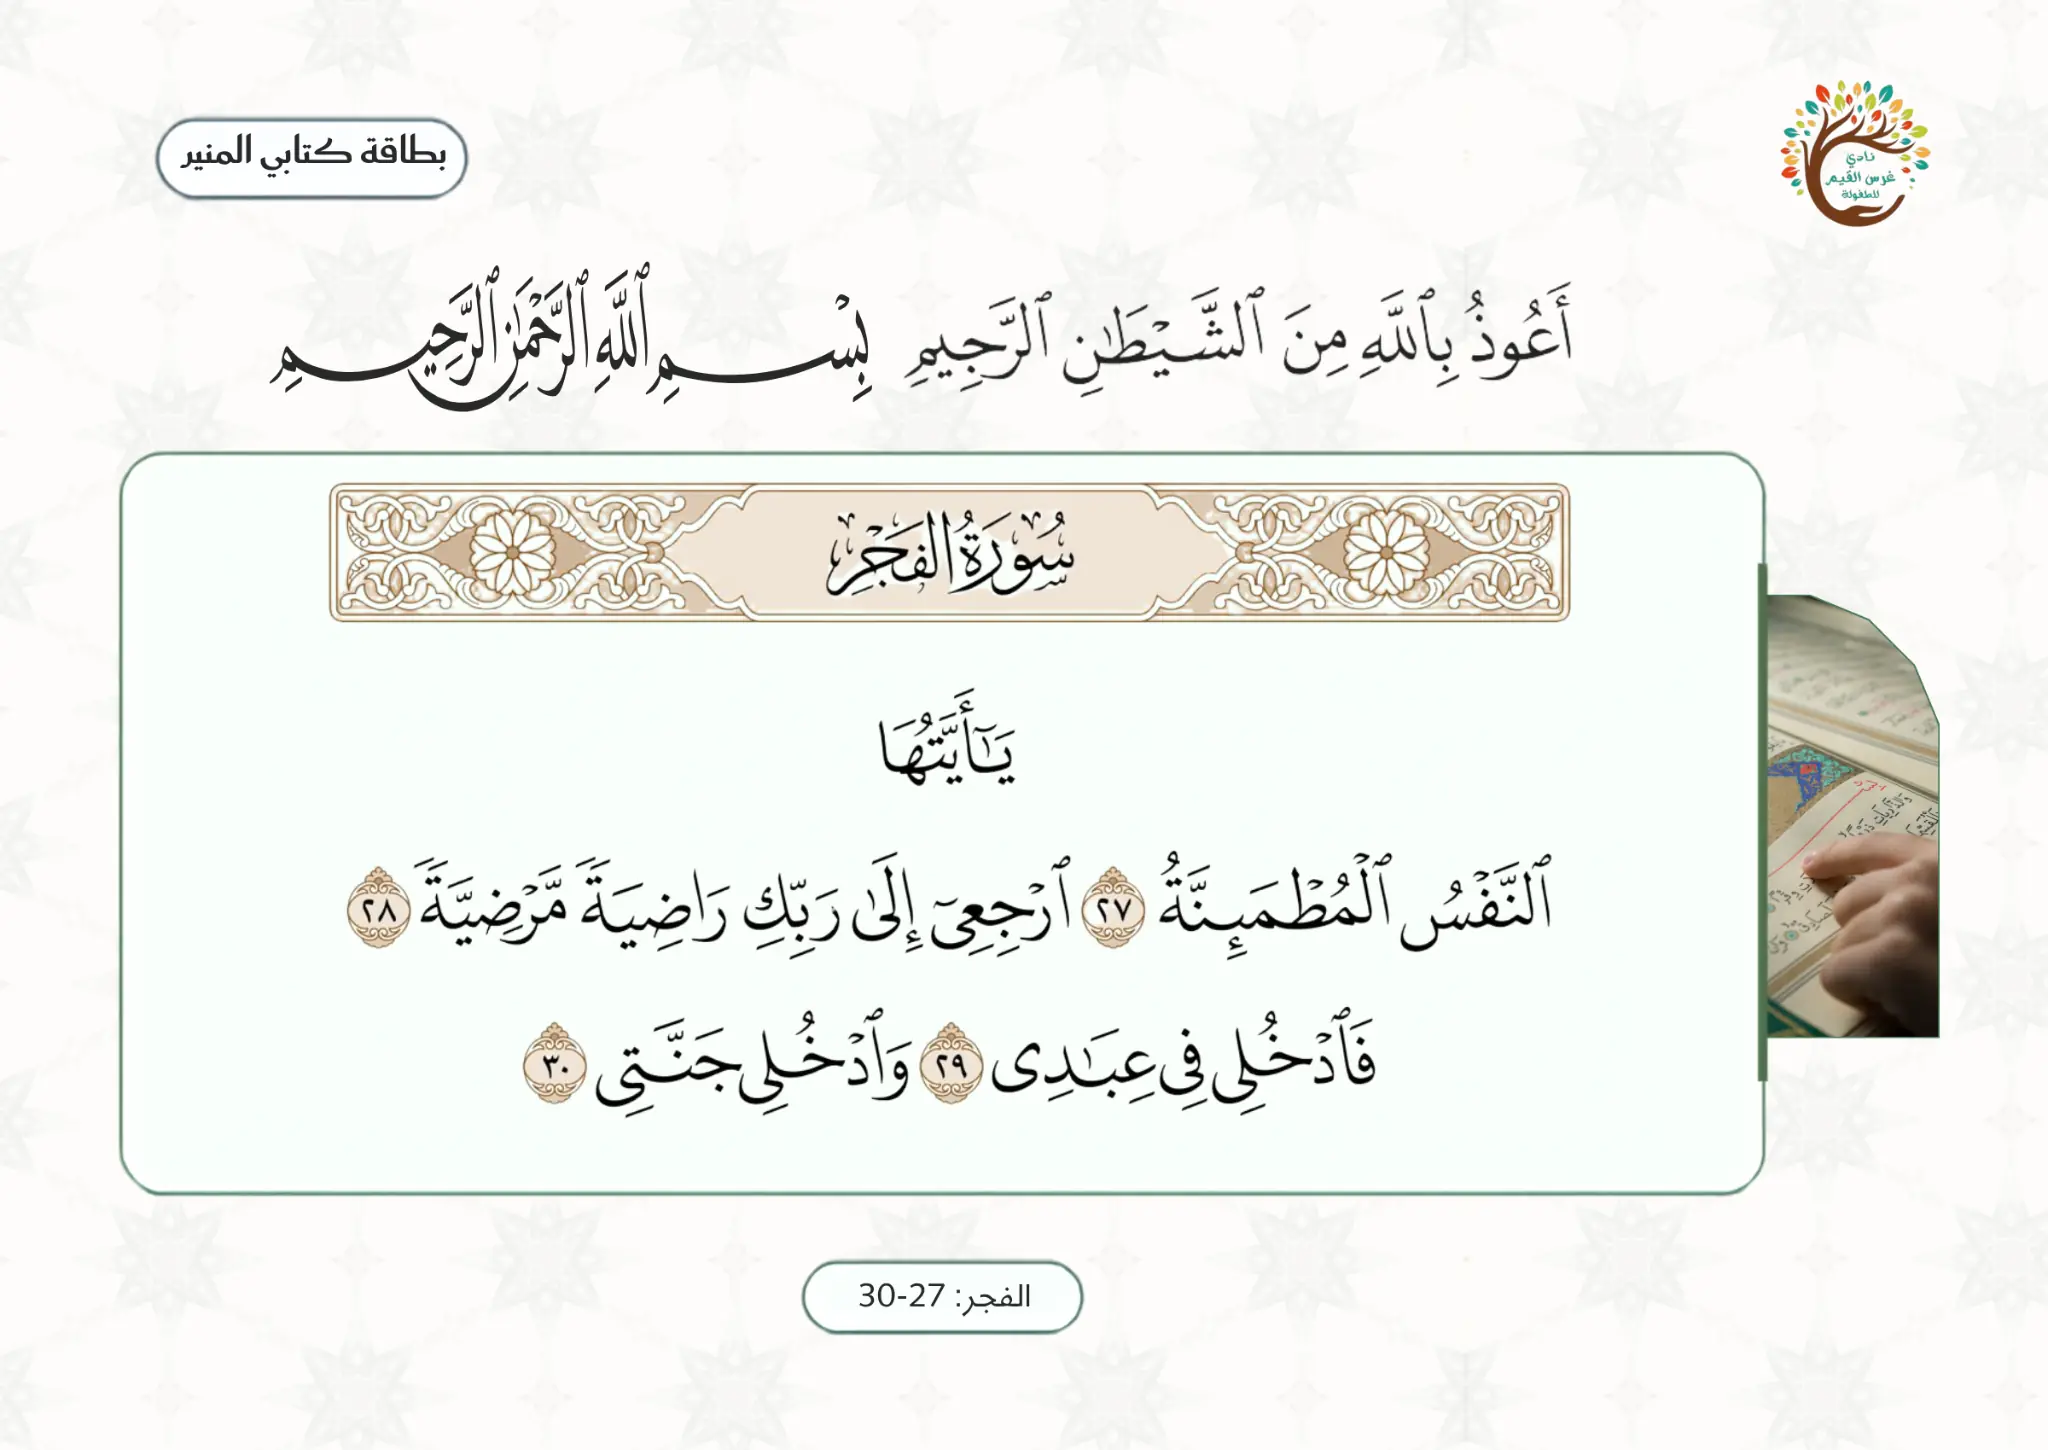 بطاقة كتابي المنير
نادي
غرس القيم
للطفولة
أَعُوذُ بِٱللَّهِ مِنَ ٱلشَّيْطَٰنِ ٱلرَّجِيمِ بِسْمِ ٱللَّهِ ٱلرَّحْمَٰنِ ٱلرَّحِيمِ
سُورَةُ الفَجْرِ
يَٰٓأَيَّتُهَا
ٱلنَّفْسُ ٱلْمُطْمَئِنَّةُ ٢٧ ٱرْجِعِىٓ إِلَىٰ رَبِّكِ رَاضِيَةً مَّرْضِيَّةً ٢٨
فَٱدْخُلِى فِى عِبَٰدِى ٢٩ وَٱدْخُلِى جَنَّتِى ٣٠
الفجر: 27-30